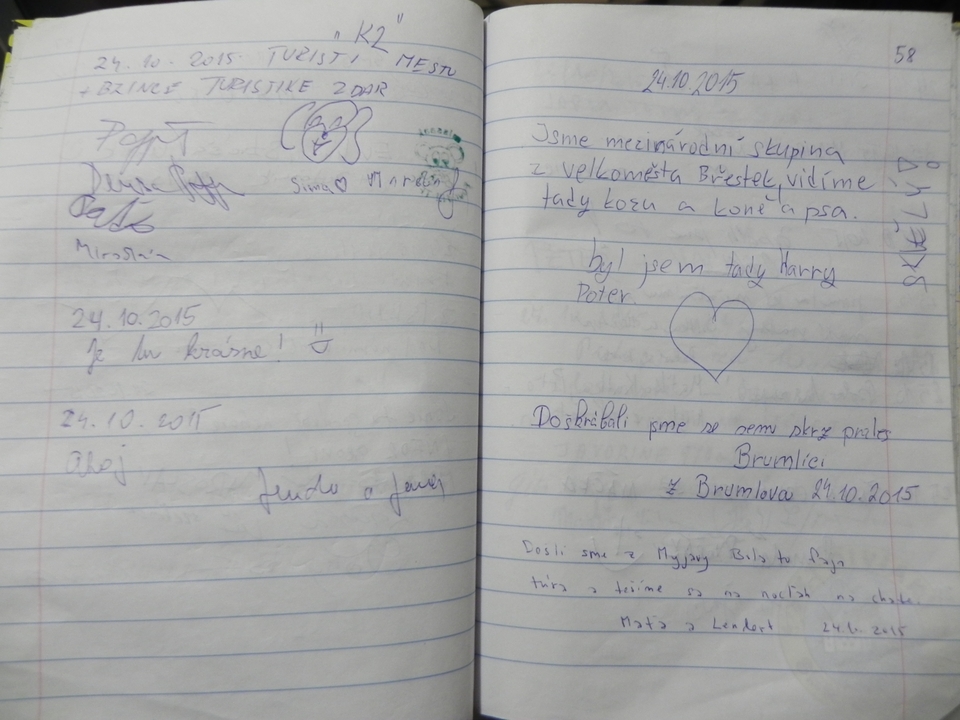 "K2"
24.10.2015 TURISTI MESTO
+ BZINCE TURISTIKE ZDAR
Sima Marián
Miroslav
24.10.2015
Je tu krásne!
24.10.2015
Ahoj
a
58
24.10.2015
Jsme mezinárodní skupina
z velkoměsta Břestek, vidíme
tady kozu a koně a psa.
byl jsem tady Harry
Poter
Doškrábali jsme se sem skrz prales
Brumlíci
z Brumlova 24.10.2015
Došli sme z Myjavy Bola to fajn
túra a tešíme sa na nocľah na chate.
Maťa a 2015